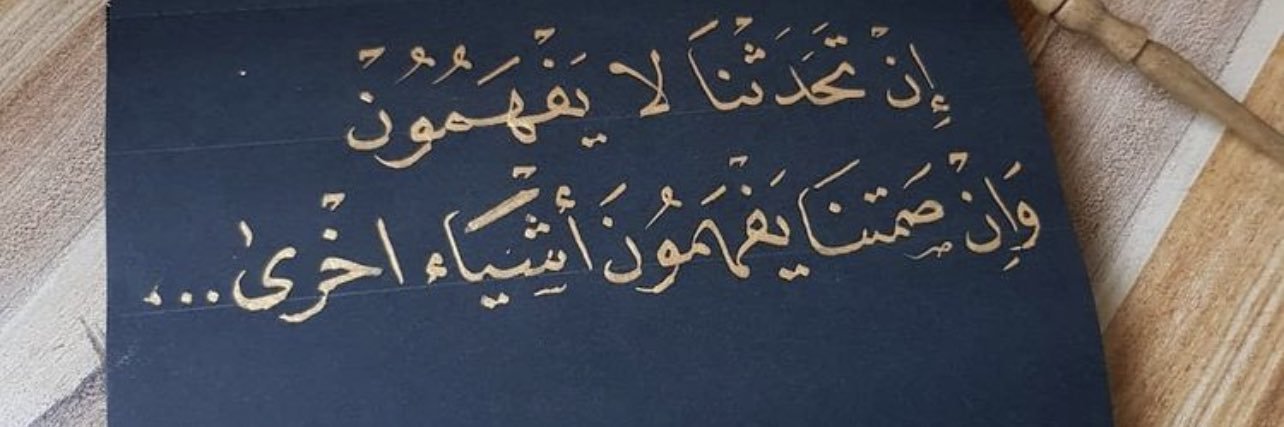 إِنْ تَحَدَثْنَا لا يَفْهَمُوُنْ
وَإِنْ صَمَتنَا يَفْهَمُونَ أَشْيَاء اخْرىٰ...